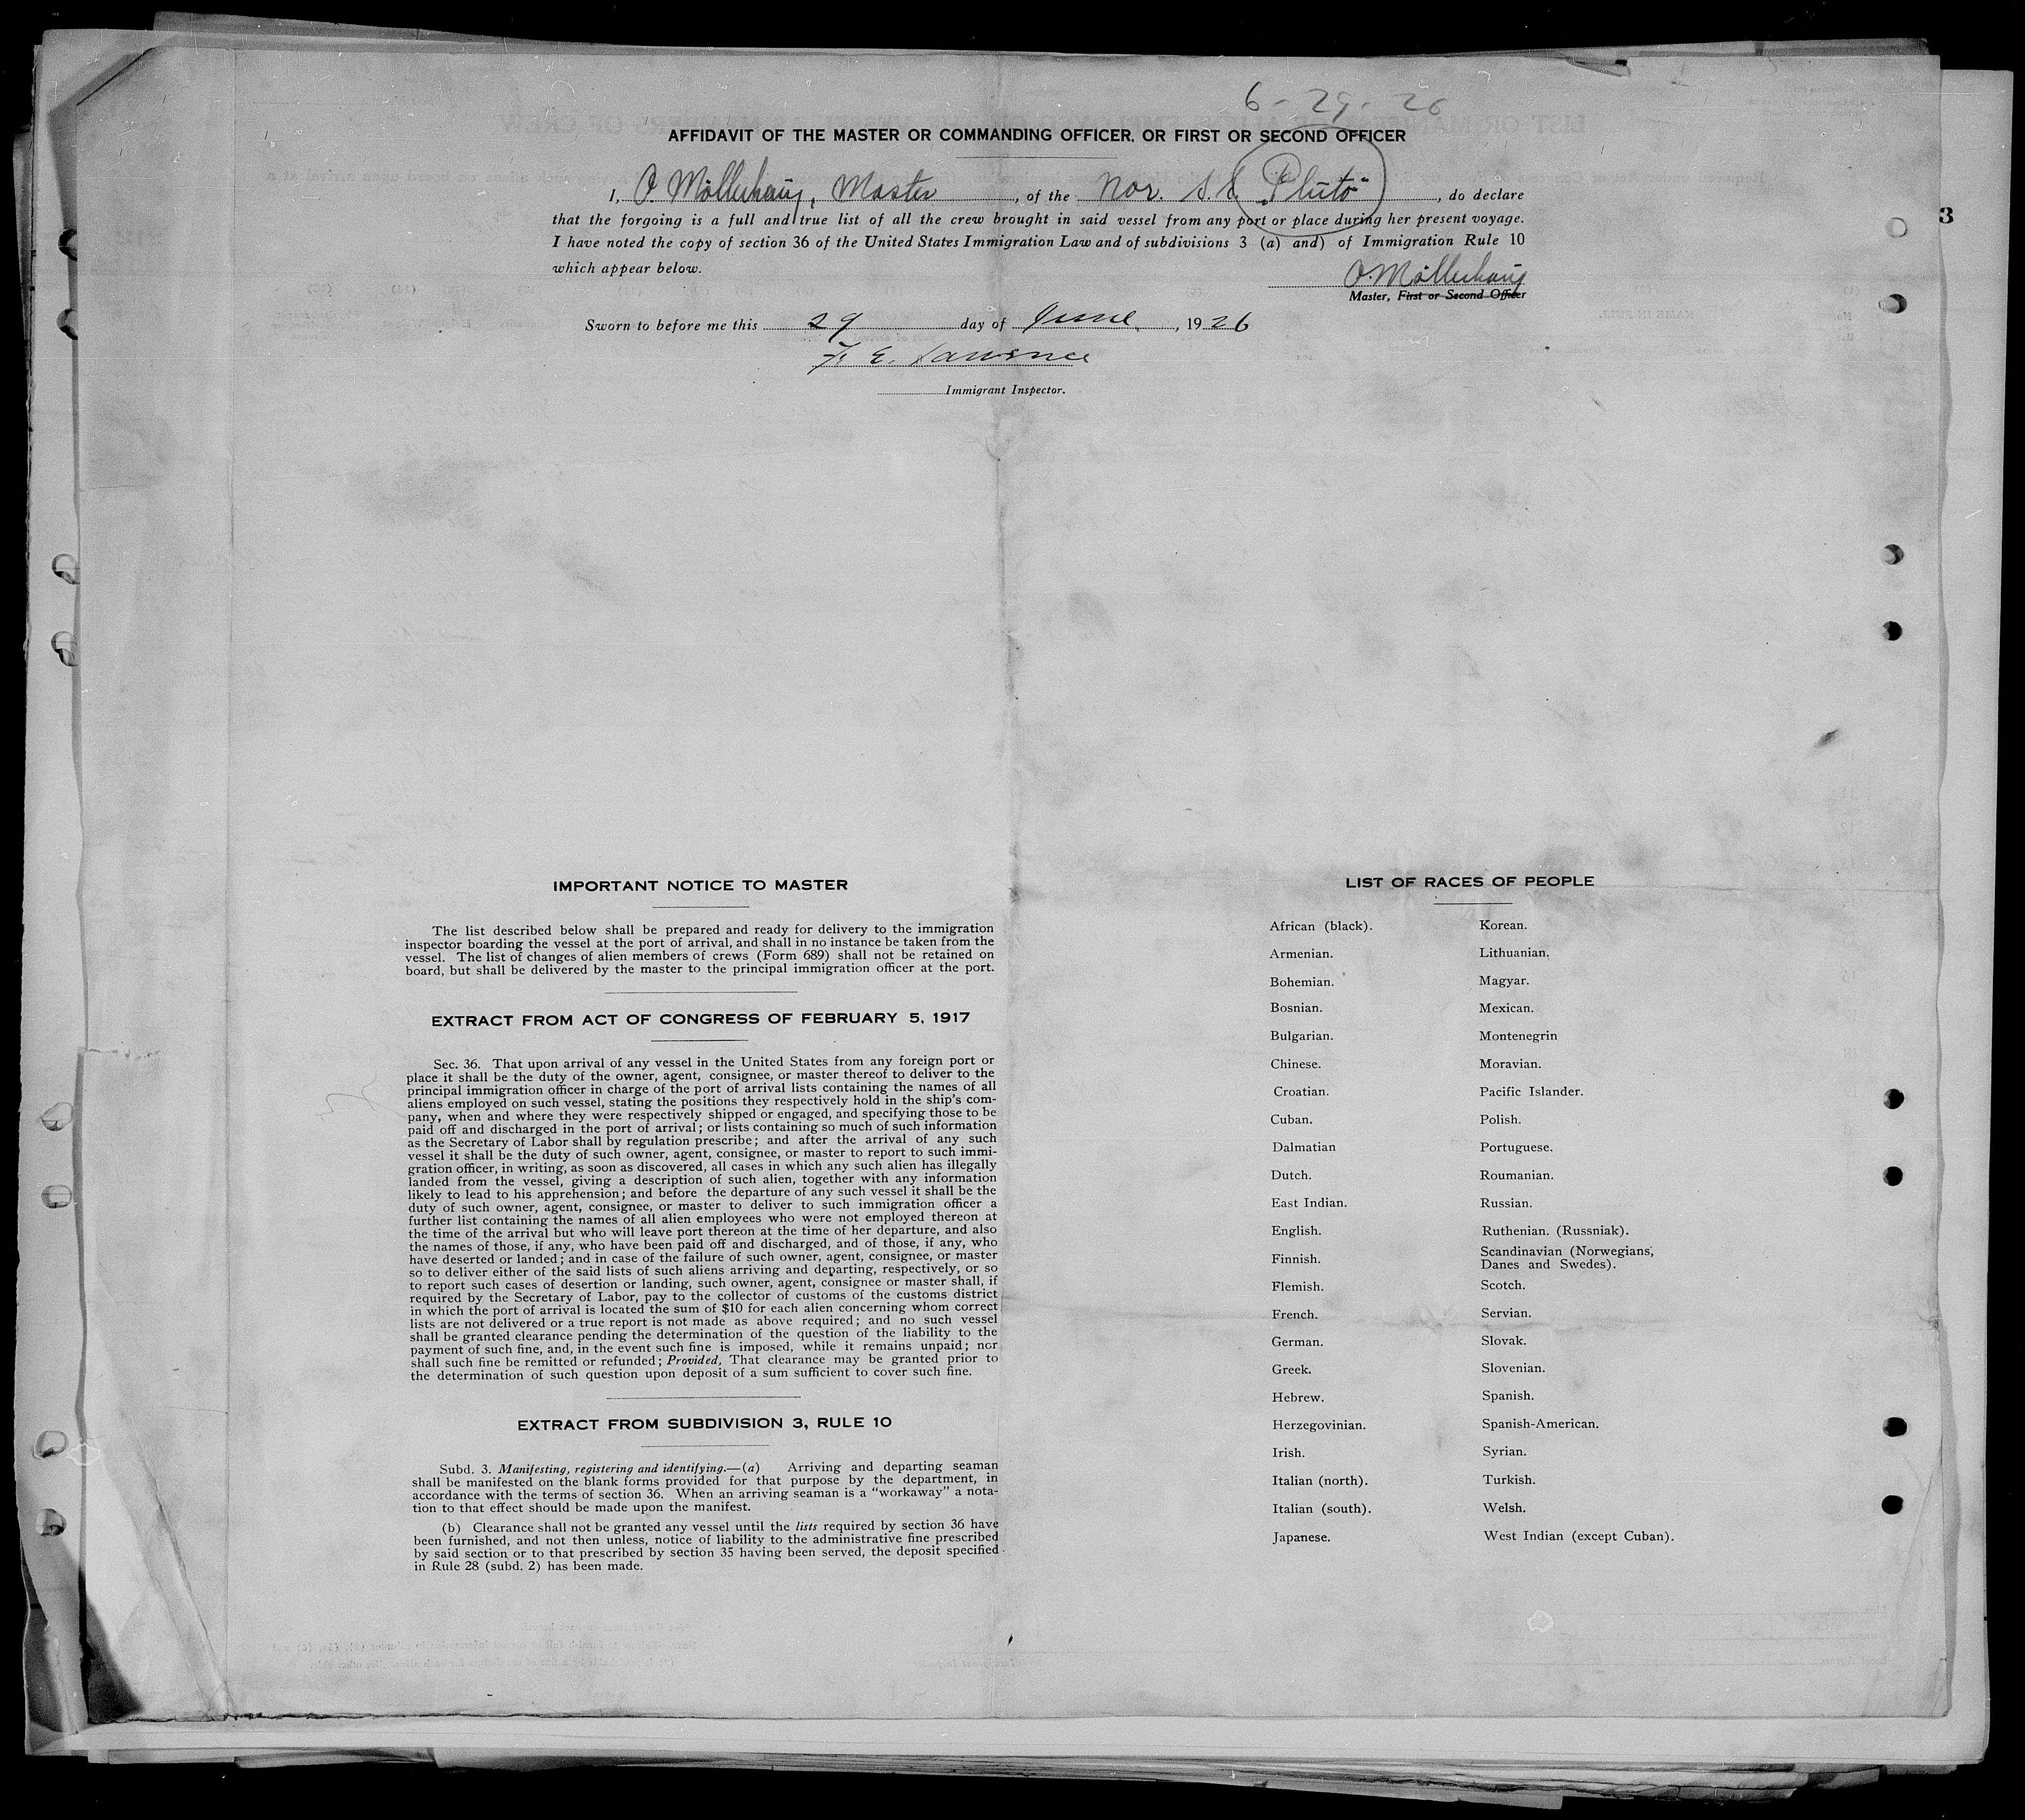 6-29-26
AFFIDAVIT OF THE MASTER OR COMMANDING OFFICER, OR FIRST OR SECOND OFFICER
I, O. Möllerhaug, Master, of the Nor. S.S. "Pluto", do declare
that the forgoing is a full and true list of all the crew brought in said vessel from any port or place during her present voyage.
I have noted the copy of section 36 of the United States Immigration Law and of subdivisions 3 (a) and) of Immigration Rule 10
which appear below.
O. Möllerhaug
Master, First or Second Officer
Sworn to before me this 29 day of June, 1926
F. E. Lawrence
Immigrant Inspector.
3
IMPORTANT NOTICE TO MASTER
The list described below shall be prepared and ready for delivery to the immigration
inspector boarding the vessel at the port of arrival, and shall in no instance be taken from the
vessel. The list of changes of alien members of crews (Form 689) shall not be retained on
board, but shall be delivered by the master to the principal immigration officer at the port.
EXTRACT FROM ACT OF CONGRESS OF FEBRUARY 5, 1917
Sec. 36. That upon arrival of any vessel in the United States from any foreign port or
place it shall be the duty of the owner, agent, consignee, or master thereof to deliver to the
principal immigration officer in charge of the port of arrival lists containing the names of all
aliens employed on such vessel, stating the positions they respectively hold in the ship's com-
pany, when and where they were respectively shipped or engaged, and specifying those to be
paid off and discharged in the port of arrival; or lists containing so much of such information
as the Secretary of Labor shall by regulation prescribe; and after the arrival of any such
vessel it shall be the duty of such owner, agent, consignee, or master to report to such immi-
gration officer, in writing, as soon as discovered, all cases in which any such alien has illegally
landed from the vessel, giving a description of such alien, together with any information
likely to lead to his apprehension; and before the departure of any such vessel it shall be the
duty of such owner, agent, consignee, or master to deliver to such immigration officer a
further list containing the names of all alien employees who were not employed thereon at
the time of the arrival but who will leave port thereon at the time of her departure, and also
the names of those, if any, who have been paid off and discharged, and of those, if any, who
have deserted or landed; and in case of the failure of such owner, agent, consignee, or master
so to deliver either of the said lists of such aliens arriving and departing, respectively, or so
to report such cases of desertion or landing, such owner, agent, consignee or master shall, if
required by the Secretary of Labor, pay to the collector of customs of the customs district
in which the port of arrival is located the sum of $10 for each alien concerning whom correct
lists are not delivered or a true report is not made as above required; and no such vessel
shall be granted clearance pending the determination of the question of the liability to the
payment of such fine, and, in the event such fine is imposed, while it remains unpaid; nor
shall such fine be remitted or refunded; Provided, That clearance may be granted prior to
the determination of such question upon deposit of a sum sufficient to cover such fine.
EXTRACT FROM SUBDIVISION 3, RULE 10
Subd. 3. Manifesting, registering and identifying.—(a) Arriving and departing seaman
shall be manifested on the blank forms provided for that purpose by the department, in
accordance with the terms of section 36. When an arriving seaman is a "workaway" a nota-
tion to that effect should be made upon the manifest.
(b) Clearance shall not be granted any vessel until the lists required by section 36 have
been furnished, and not then unless, notice of liability to the administrative fine prescribed
by said section or to that prescribed by section 35 having been served, the deposit specified
in Rule 28 (subd. 2) has been made.
LIST OF RACES OF PEOPLE
African (black).
Armenian.
Bohemian.
Bosnian.
Bulgarian.
Chinese.
Croatian.
Cuban.
Dalmatian
Dutch.
East Indian.
English.
Finnish.
Flemish.
French.
German.
Greek.
Hebrew.
Herzegovinian.
Irish.
Italian (north).
Italian (south).
Japanese.
Korean.
Lithuanian.
Magyar.
Mexican.
Montenegrin
Moravian.
Pacific Islander.
Polish.
Portuguese.
Roumanian.
Russian.
Ruthenian. (Russniak).
Scandinavian (Norwegians,
Danes and Swedes).
Scotch.
Servian.
Slovak.
Slovenian.
Spanish.
Spanish-American.
Syrian.
Turkish.
Welsh.
West Indian (except Cuban).